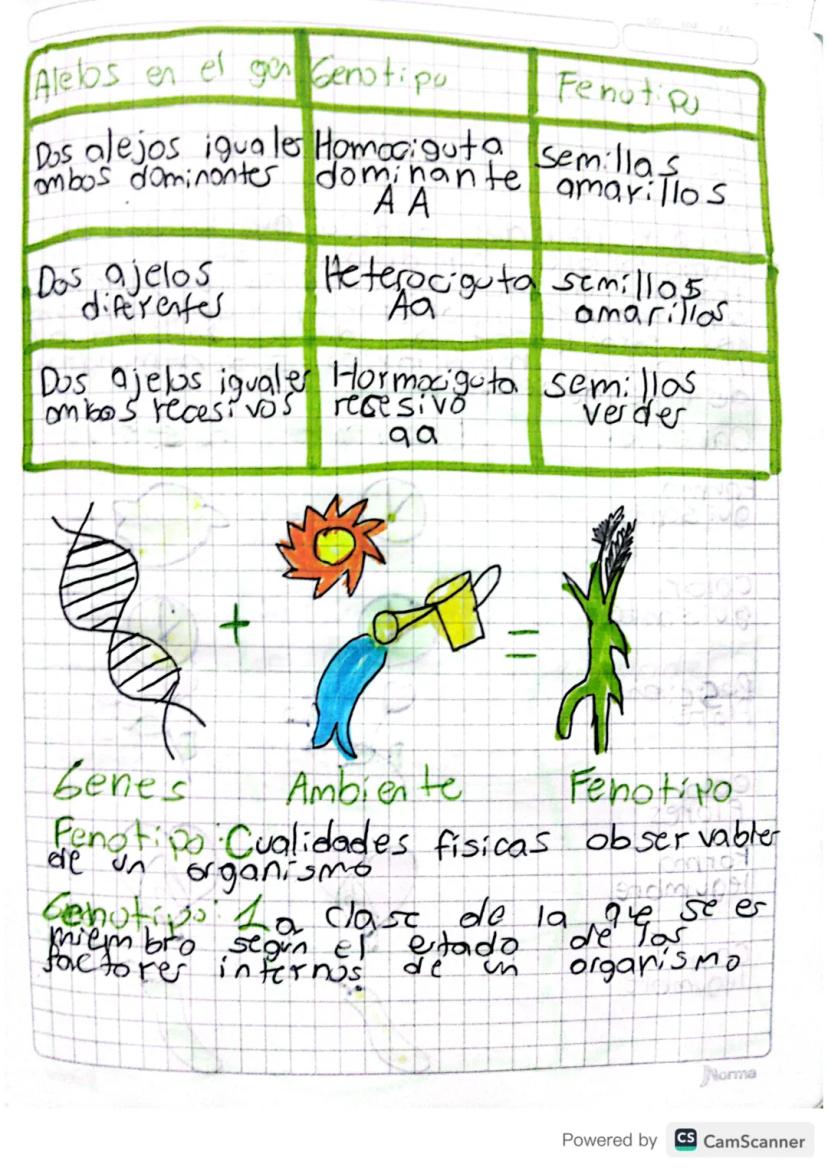 Alelos en el gen
Genotipo
Fenotipo
Dos alejos iguales
ambos dominantes
Homociguta
dominante
A A
semillas
amarillos
Dos ajelos
diferentes
Heterociguta
Aa
semillos
amarillos
Dos ajelos iguales
ambos recesivos
Hormociguta
recesivo
aa
semillos
verdes
+
=
Genes
Ambiente
Fenotipo
Fenotipo: Cualidades físicas observables
de un organismo
Genotipo: La clase de la que se es
miembro según el estado de los
factores internos de un organismo
Norma
Powered by CS CamScanner